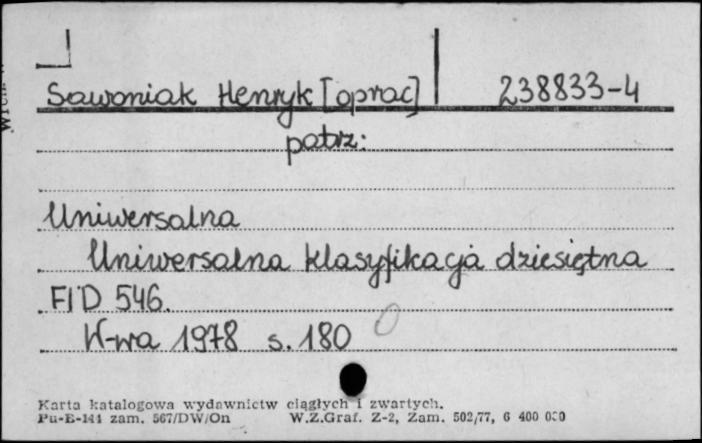 Sawoniak Henryk [oprac] 238833-4
patrz:
Uniwersalna
Uniwersalna klasyfikacja dziesiętna
FID 546.
W-wa 1978 s. 180
Karta katalogowa wydawnictw ciągłych i zwartych.
Pu-E-141 zam. 567/DW/On W.Z.Graf. Z-2, Zam. 502/77, 6 400 000